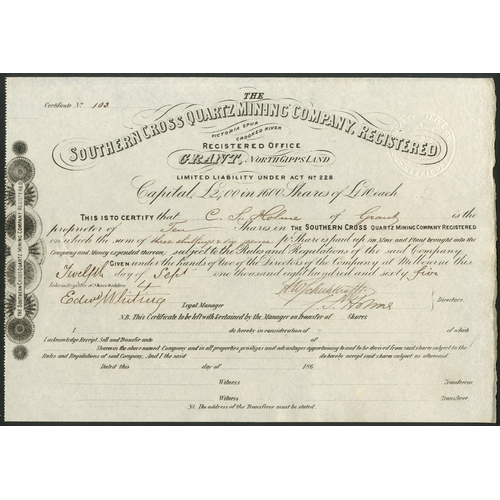 THE
Certificate No. 103
SOUTHERN CROSS QUARTZ MINING COMPANY, REGISTERED
VICTORIA SPUR
CROOKED RIVER
REGISTERED OFFICE
GRANT, NORTH GIPPSLAND
LIMITED LIABILITY UNDER ACT No 228
Capital, £2,400 in 1600 Shares of £1.10 each
THIS IS TO CERTIFY that C. S. Holme of Grant is the
proprietor of Ten Shares in THE SOUTHERN CROSS QUARTZ MINING COMPANY REGISTERED
on which the sum of three shillings & pr Share is paid up in Mine and Plant brought into the
Company and Money expended thereon, subject to the Rules and Regulations of the said Company
GIVEN under the hands of two of the Directors of the Company at Melbourne this
Twelfth day of Sept one thousand eight hundred and sixty five
Folio in register of Shareholders 4
Edwd Whiting
Legal Manager
Holme
Directors.
N.B. This Certificate to be left with & retained by the Manager on transfer of Shares
I do hereby in consideration of of which
I acknowledge Receipt, Sell and Transfer unto
Shares in the above named Company and in all properties, privileges and advantages appertaining to and to be derived from said shares subject to the
Rules and Regulations of said Company, And I the said do hereby accept said shares subject as aforesaid
Dated this day of 186
Witness Transferree
Witness Transferer
N.B. The address of the Transferer must be stated.
THE SOUTHERN CROSS QUARTZ MINING COMPANY REGISTERED